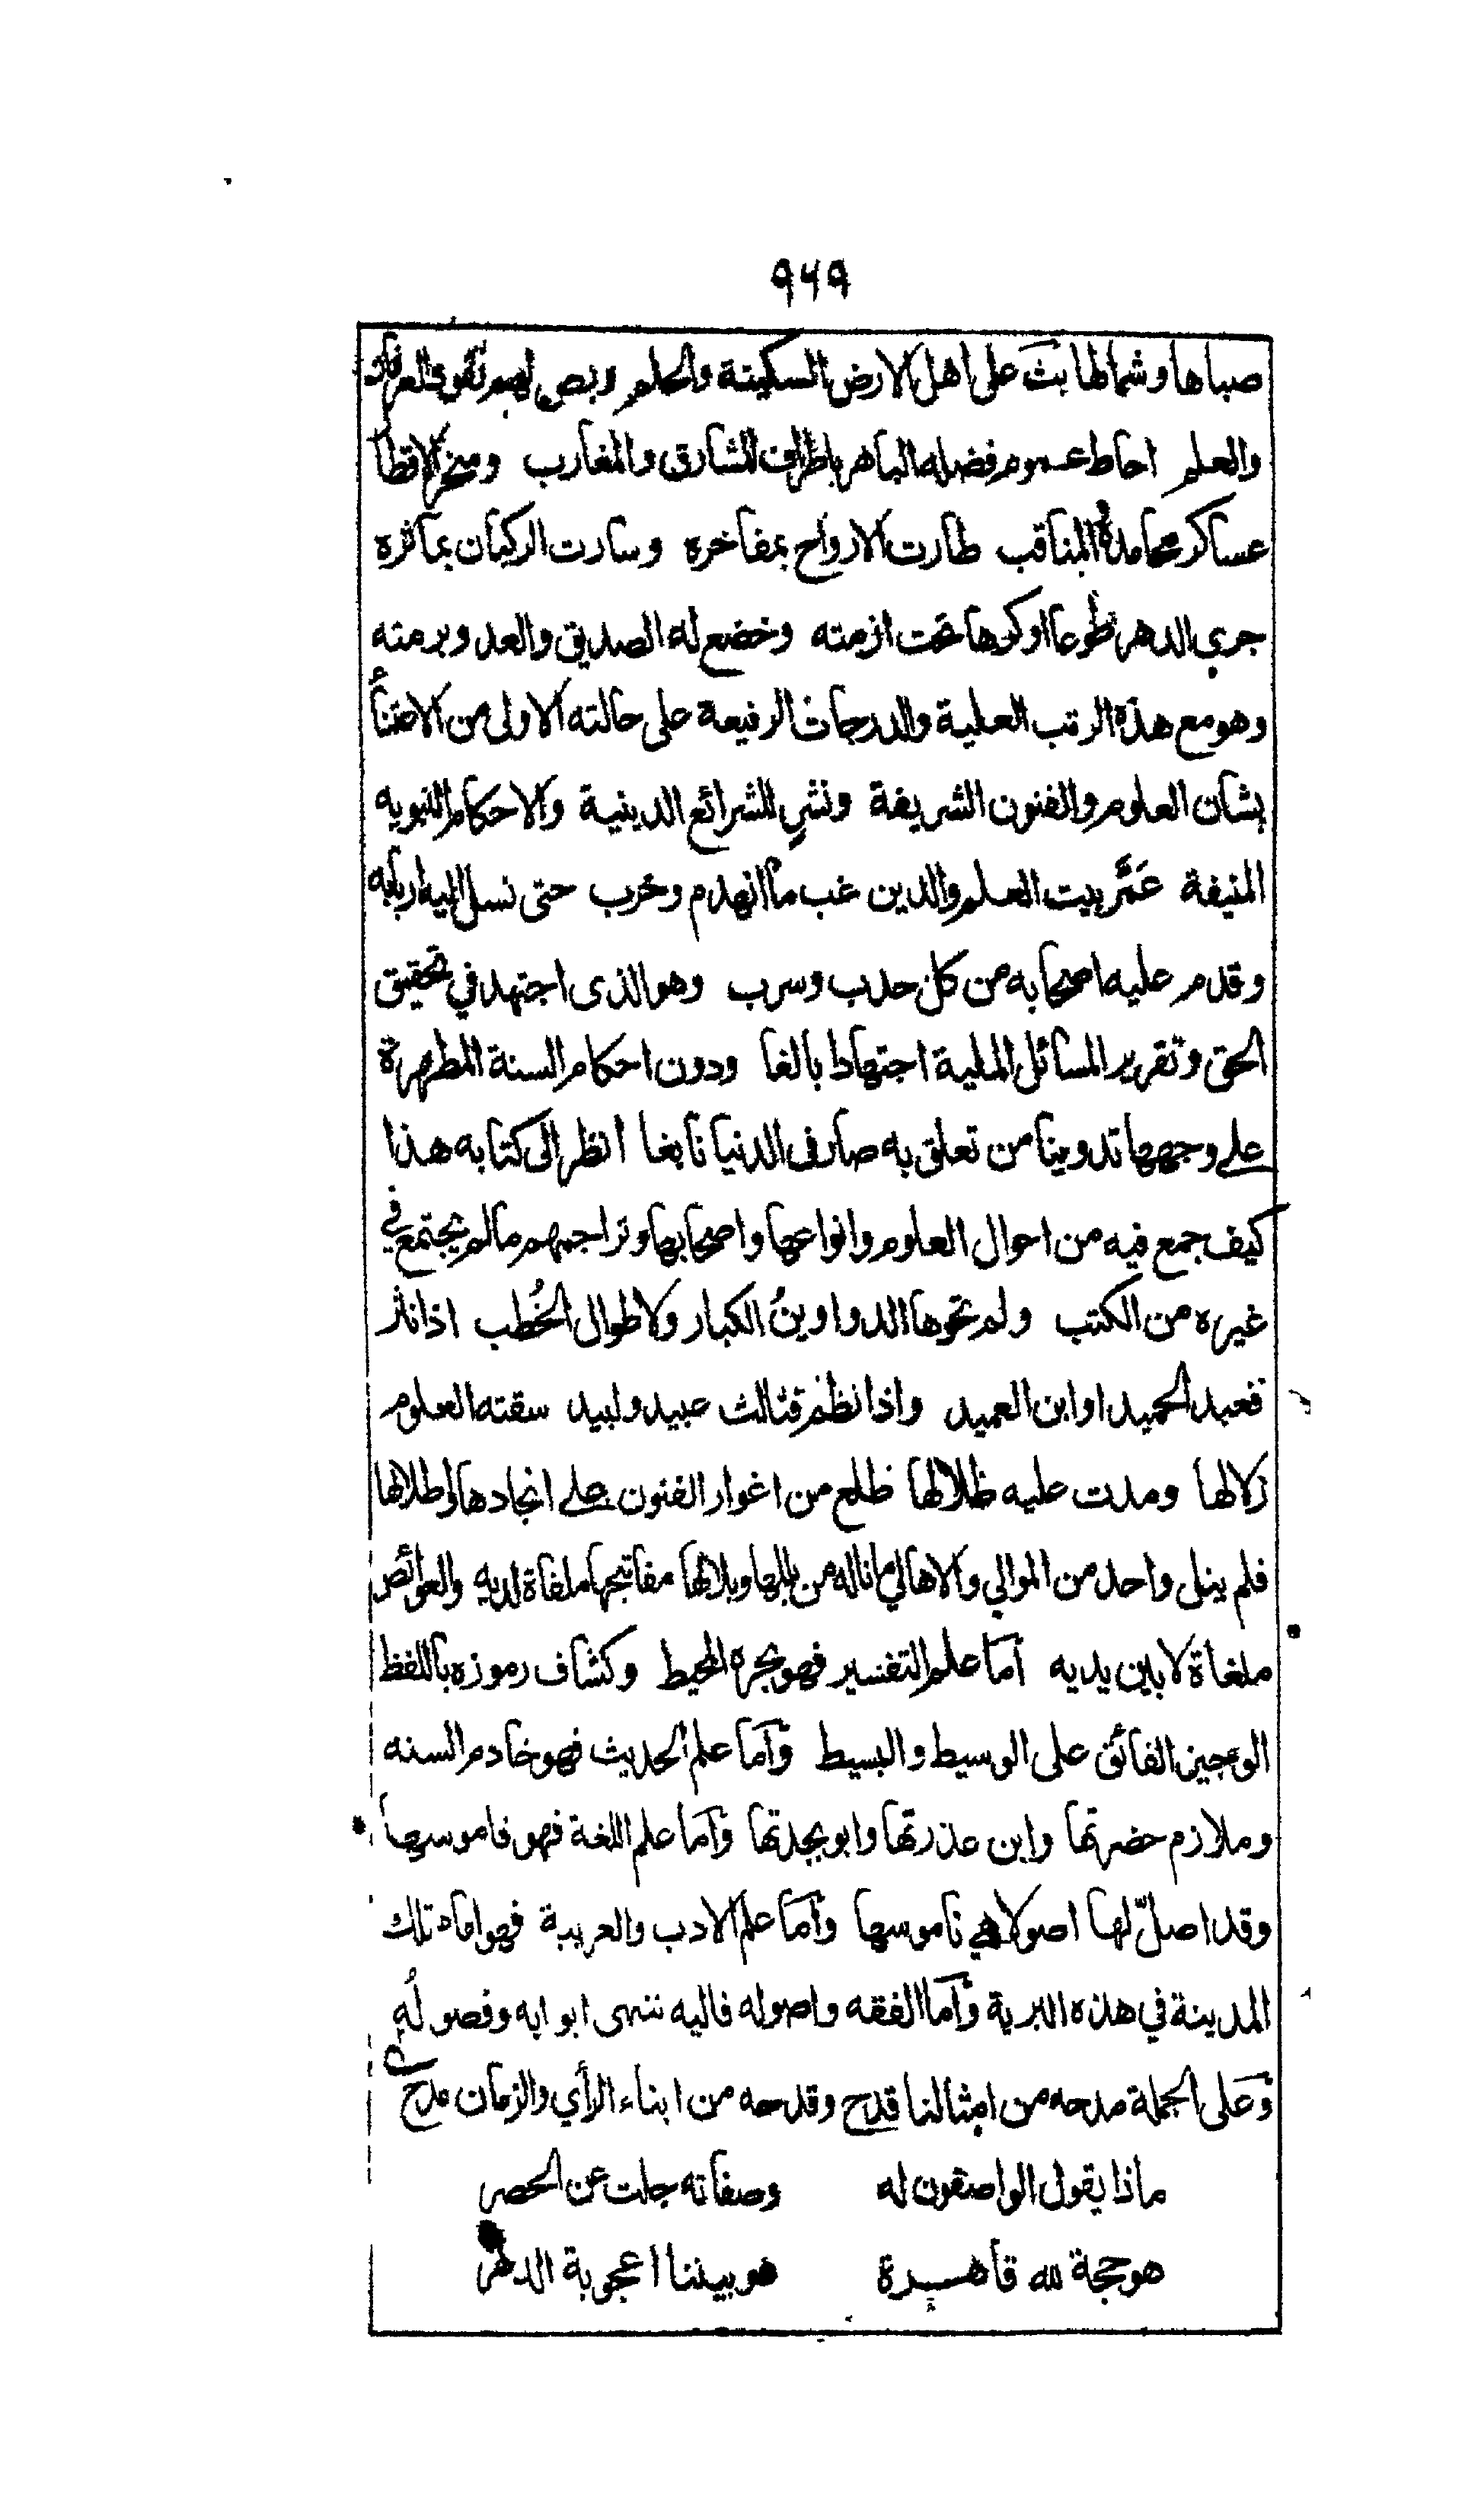 ٩٦٩
صباها وشمالها بث على اهل الارض السكينة والحلم وبصرهم تقوى العرفان
والعلم احاط عموم فضله الباهر باطراف المشارق والمغارب وسخر الاقطار
عساكر محامده والمناقب طارت الارواح بمفاخره وسارت الركبان بمآثره
جرى الدهر طوعا اوكرها تحت ازمته وخضع له الصديق والعدو برمته
وهو مع هذه الرتب العلية والدرجات الرفيعة على حالته الاولى من الاعتناء
بشان العلوم والفنون الشريفة ونشر الشرائع الدينية والاحكام النبويه
المنيفة عَمَّر بيت العلم والدين غب ما انهدم وخرب حتى نسل اليه اربابه
وقدم عليه اصحابه من كل حدب وسرب وهو الذى اجتهد في تحقيق
الحق وتقرير المسائل الملية اجتهادا بالغا ودون احكام السنة المطهرة
على وجهها تدوينا من تعلق به صار فى الدنيا نابغا انظر الى كتابه هذا
كيف جمع فيه من احوال العلوم وانواعها واصحابها وتراجمهم مالم يجتمع في
غيره من الكتب ولم تحوها الدواوينُ الكبار ولا طوال الخُطب اذا نثر
فعبد الحميد او ابن العميد واذا نظم فثالث عبيد ولبيد سقته العلوم
زلالها ومدت عليه ظلالها طلع من اغوار الفنون على انجادها واطلالها
فلم ينل واحد من الموالي والاهالي ما ناله من بللها وبلالها مفاتيحها ملقاة لديه والعوائص
ملغاة لا بين يديه اما علم التفسير فهو بحره المحيط وكشاف رموزه باللفظ
الوجيز الفائق على الوسيط والبسيط وآما علم الحديث فهو خادم السنه
وملازم حضرتها وابن عذرتها وابو بجدتها وآما علم اللغة فهو قاموسها
وقد اصلّ لها اصولا هي ناموسها وآما علم الادب والعربية فهو امام تلك
المدينة في هذه البرية وآما الفقه واصوله فاليه تنتهى ابوابه وفصوله
وَعلى الجملة مدحه من امثالنا قدح وقدحه من ابناء الرأي والزمان مدح
ماذا يقول الواصفون له وصفاته جلت عن الحصر
هو حجة لله قاهرة هو بيننا اعجوبة الدهر